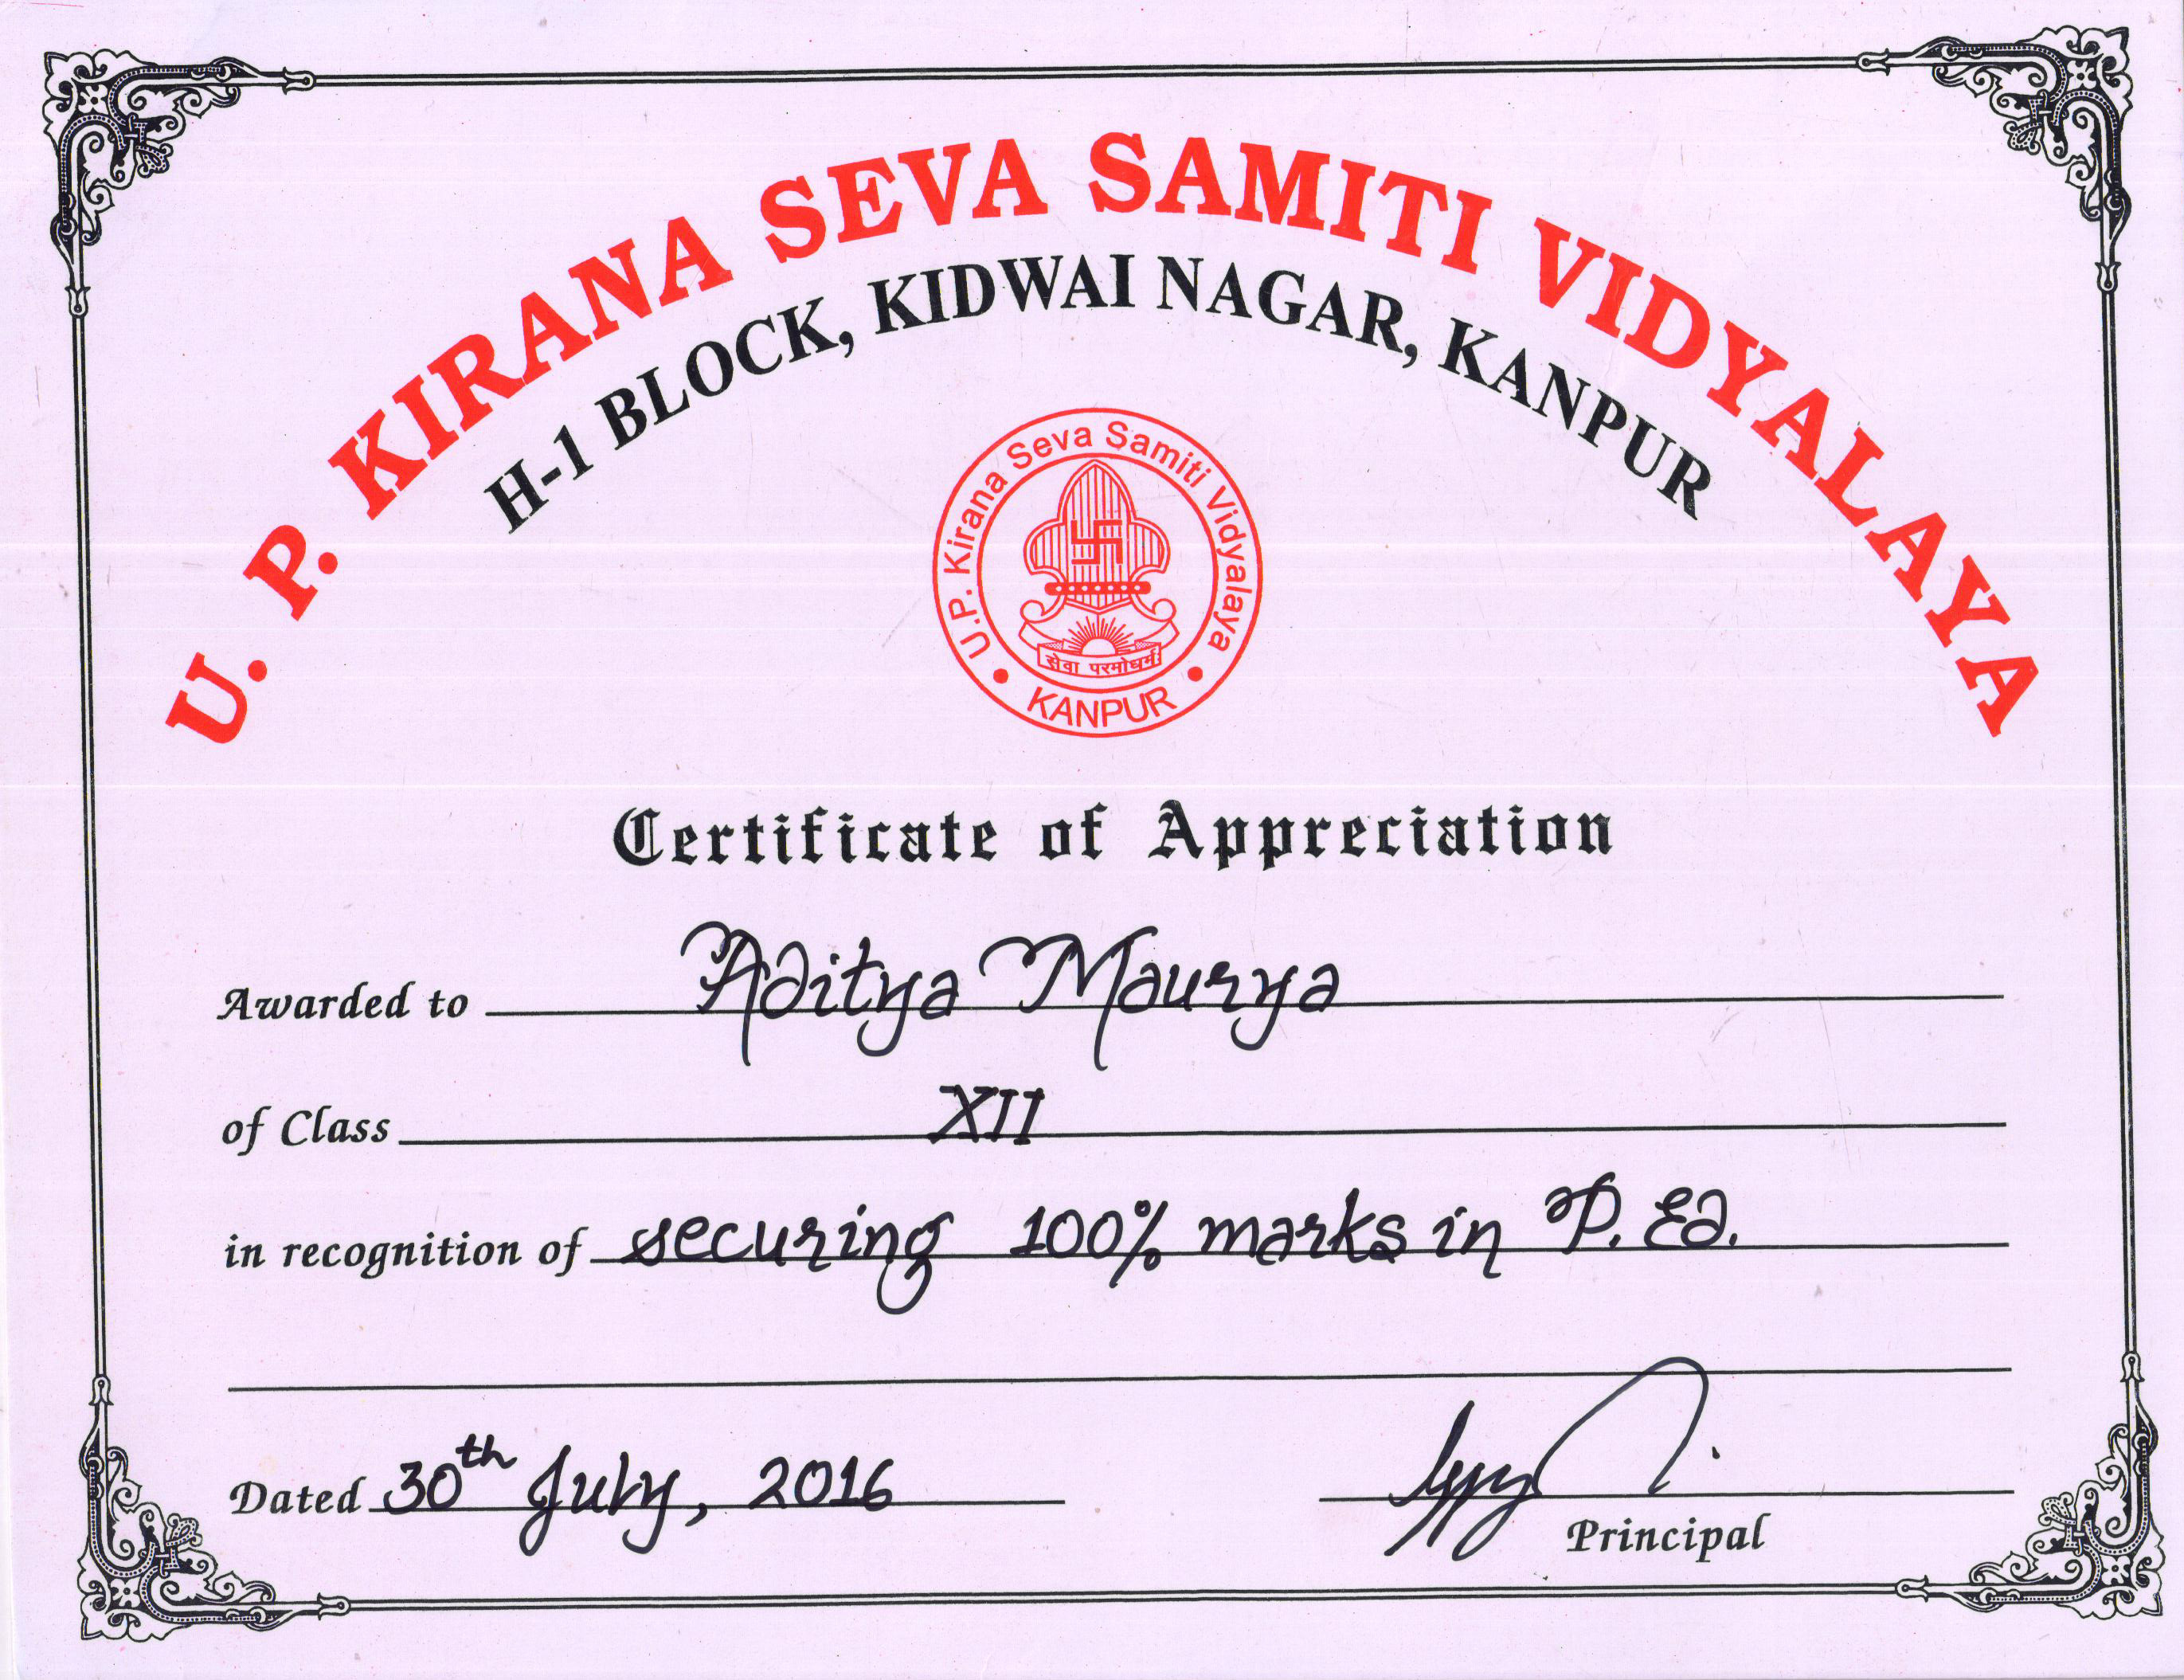 U. P. KIRANA SEVA SAMITI VIDYALAYA
H-1 BLOCK, KIDWAI NAGAR, KANPUR
U.P. Kirana Seva Samiti Vidyalaya
सेवा परमोधर्मः
• KANPUR •
Certificate of Appreciation
Awarded to Aditya Maurya
of Class XII
in recognition of securing 100% marks in P. Ed.
Dated 30th July, 2016
Principal